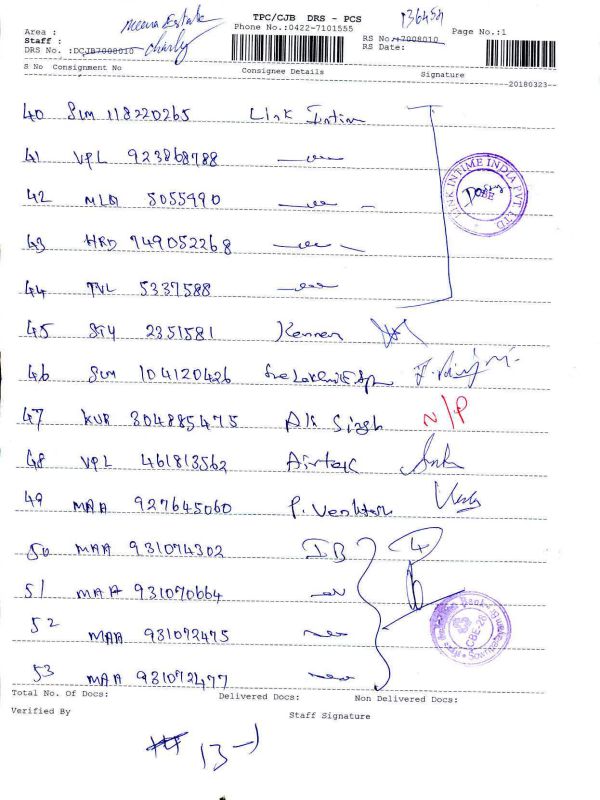 TPC/CJB DRS - PCS
136454
Neena Estate
Area :
Phone No.:0422-7101555
Page No.:1
Staff :
Charly
RS No.:17008010
DRS No. :DCJB7008010
RS Date:
S No Consignment No Consignee Details Signature
20180323
40 SLM 118220265 Link Intime
41 VPL 923868788
42 MLD 5055490
43 HRD 749052268
44 TVL 5337588
LINK INTIME INDIA PVT LTD
CBE
45 2351581 Kannan
46 SLM 104120426
47 KUR 304885475 Ak Singh N/P
48 VPL 461813562 Airtel
49 MAA 927645060 P. Venktar
50 MAA 931074302 IB
51 MAA 931070664
52 MAA 931072475
53 MAA 931072477
CBE-28
Total No. Of Docs: Delivered Docs: Non Delivered Docs:
Verified By
Staff Signature
13-1